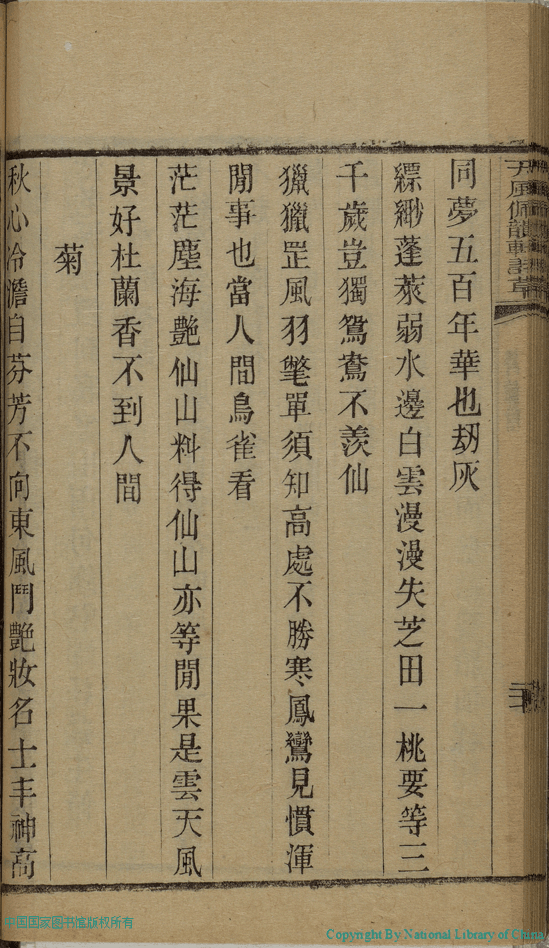 天風佩龍軒詩草
同夢五百年華也劫灰
縹緲蓬萊弱水邊白雲漫漫失芝田一桃要等三
千歲豈獨鴛鴦不羨仙
獵獵罡風羽氅單須知高處不勝寒鳳鸞見慣渾
閒事也當人間鳥雀看
茫茫塵海艷仙山料得仙山亦等閒果是雲天風
景好杜蘭香不到人間
菊
秋心冷澹自芬芳不向東風鬥艷妝名士丰神高
中国国家图书馆版权所有
Copyright By National Library of China